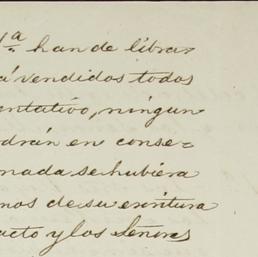 1ª han de libra=
á vendidos todos
entativo, ningun
drán en conse=
nada se hubiera
nos de su escritura
acto y los Señores